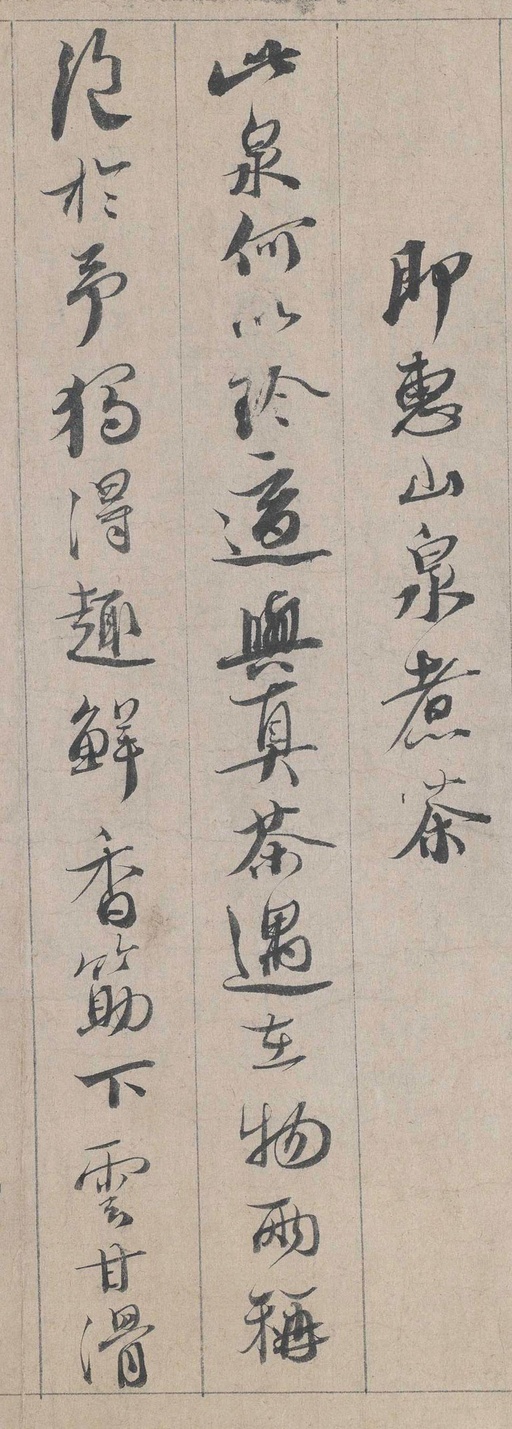 即惠山泉煮茶
此泉何以珍適與真茶遇在物兩稱
絕於予獨得趣鮮香筯下雲甘滑